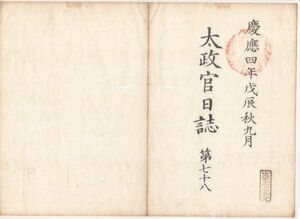 慶應四年戊辰秋九月
太政官日誌 第七十八